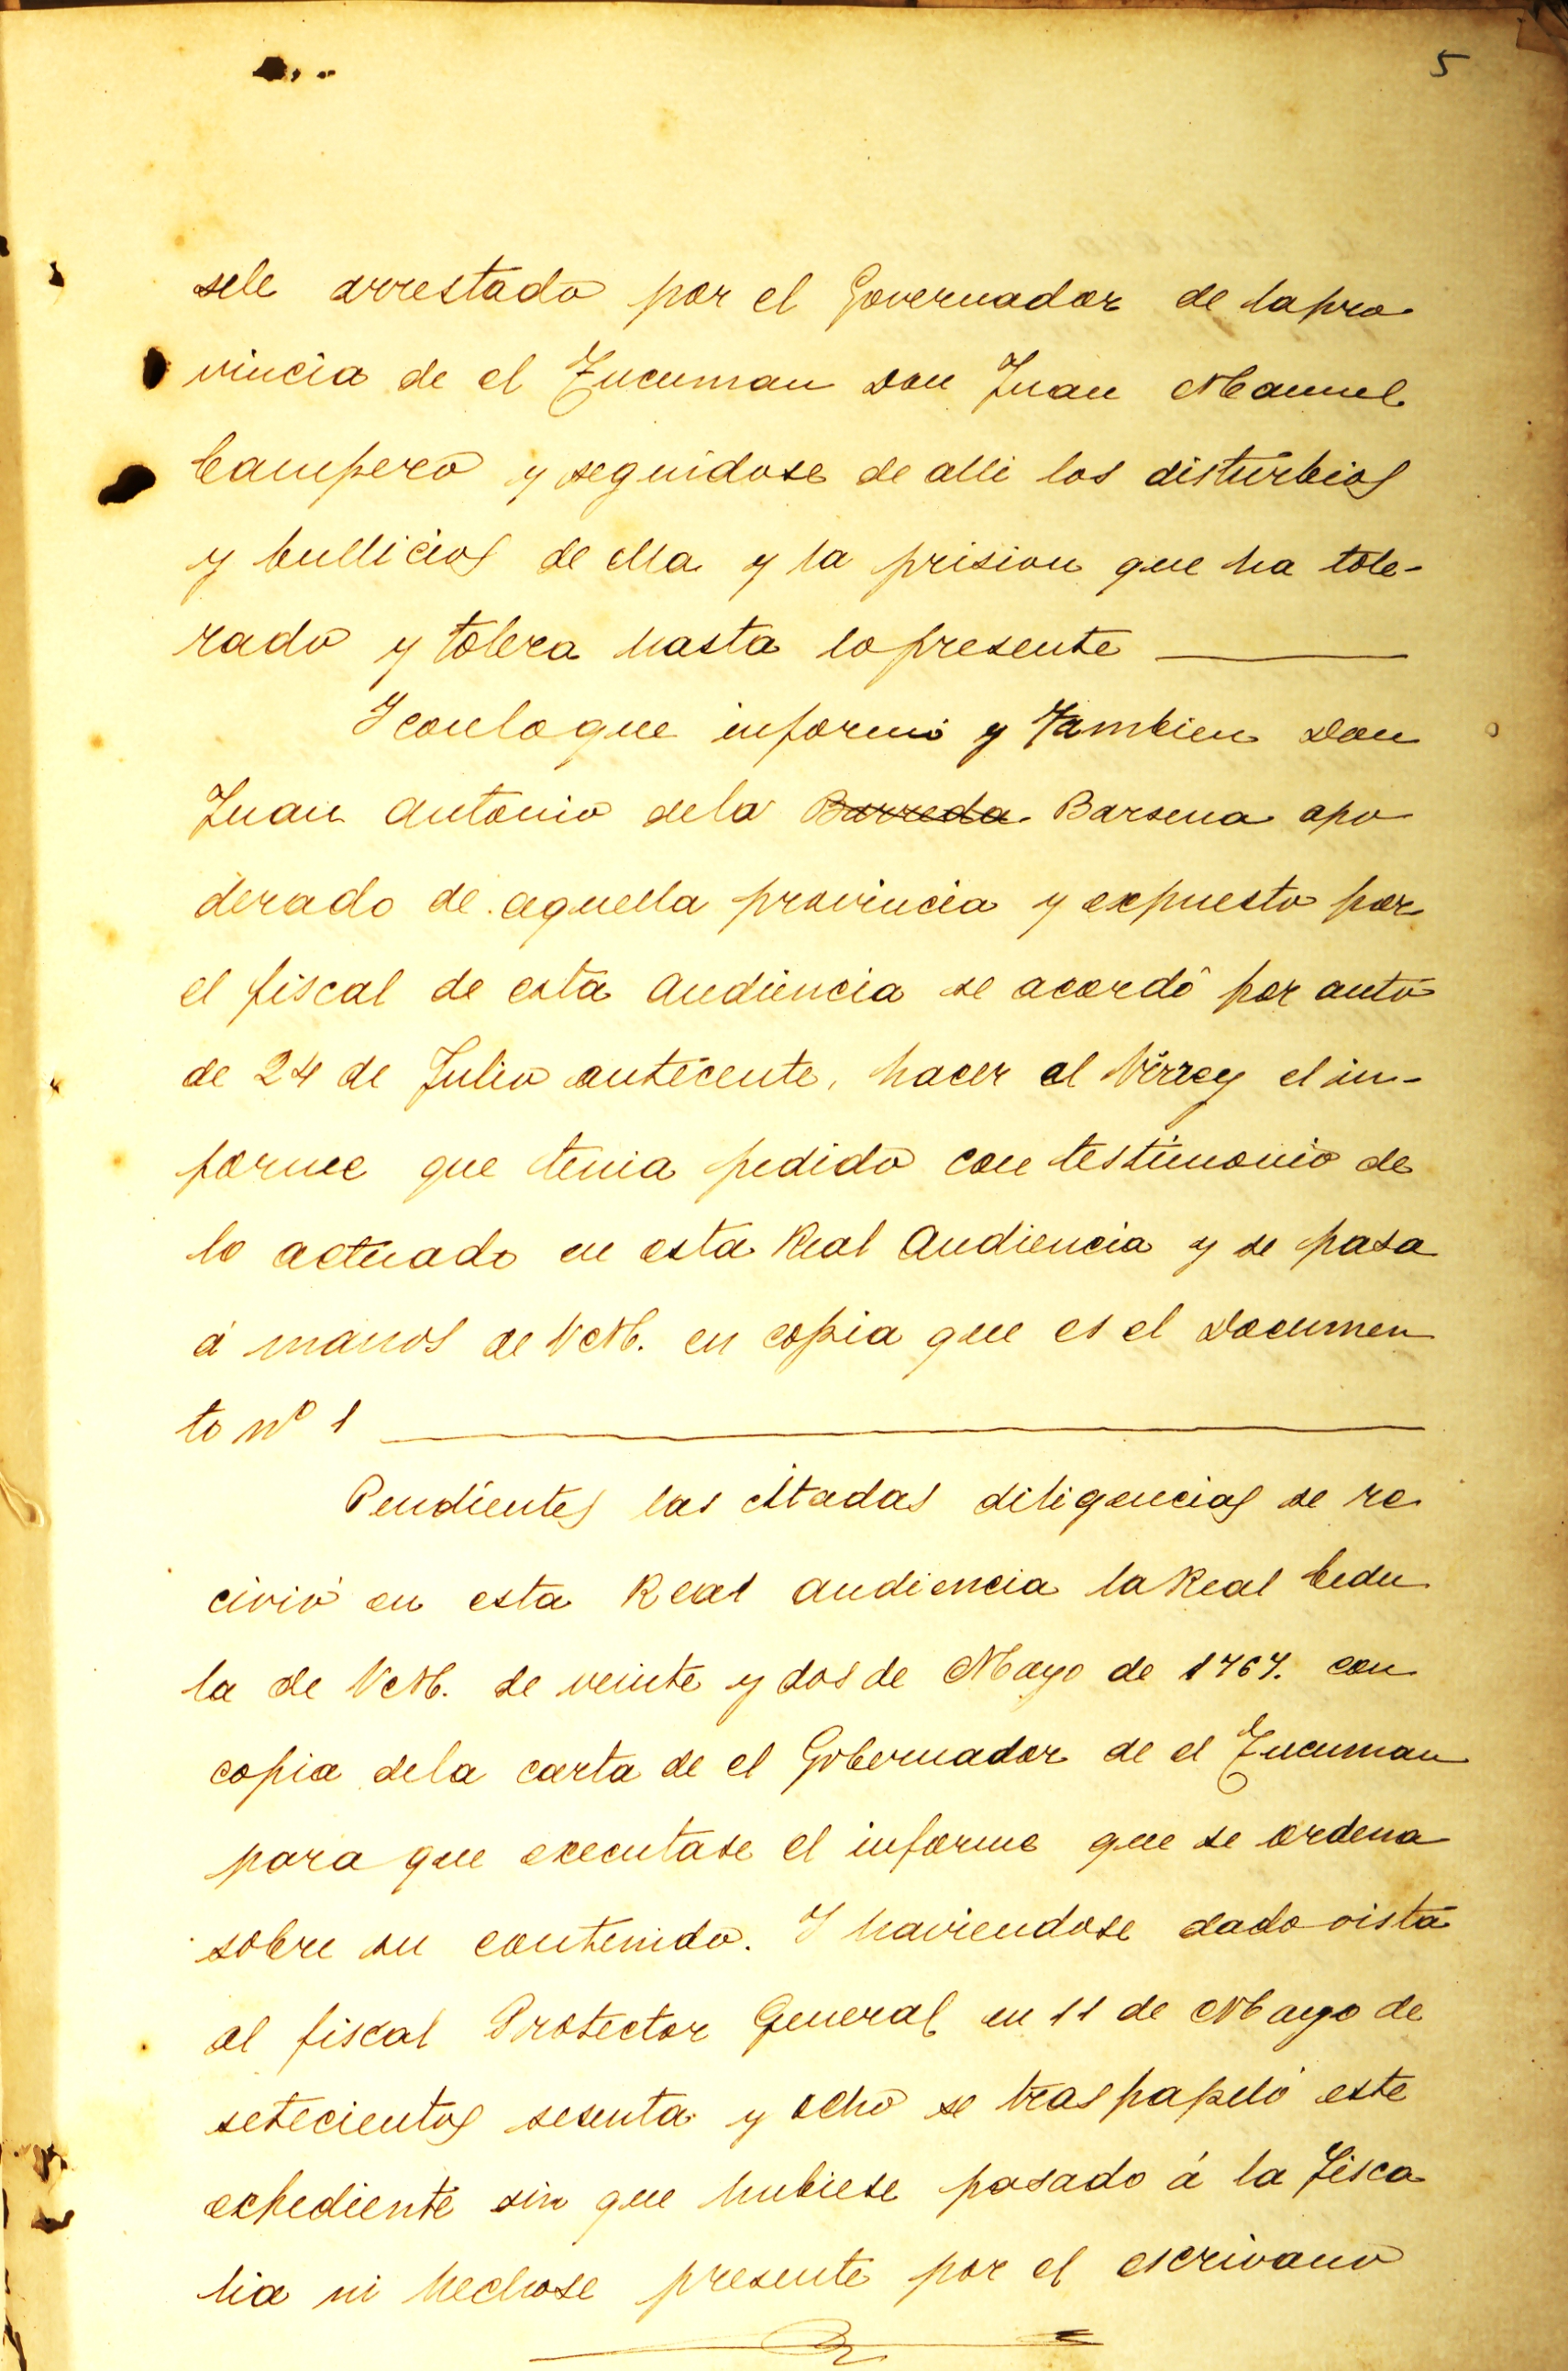 5
sele arrestado por el Governador de lapro
vincia de el Tucuman Don Juan Manuel
Campero y seguidose de alli los disturbios
y bullicios de ella y la prision que ha tole-
rado y tolera hasta lo presente
I conlo que informó y Tambien Don
Juan Antonio dela Barreda Barsena apo
derado de aquella provincia y expuesto por
el fiscal de esta Audiencia se acordó por auto
de 24 de Julio antecente, hacer al Virrey el in-
forme que tenia pedido con testimonio de
lo actuado en esta Real Audiencia y se pasa
á manos de V.M. en copia que es el Documen
to nº 1
Pendientes las citadas diligencias se re
civió en esta Real Audiencia la Real Cedu
la de V.M. de veinte y dos de Mayo de 1767. con
copia dela carta de el Gobernador de el Tucuman
para que executase el informe que se ordena
sobre su contenido. I haviendose dado vista
al fiscal Protector General en 11 de Mayo de
setecientos sesenta y ocho se traspapeló este
expediente sin que hubiese pasado á la Fisca
lia ni hechose presente por el escrivano